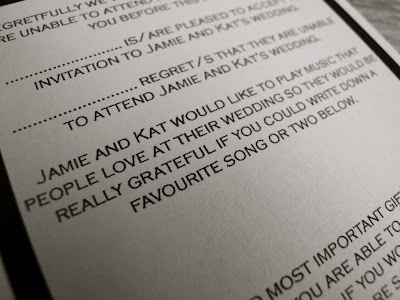 EGRETFULLY WE
RE UNABLE TO ATTEND
YOU BEFORE THIS
............................ IS/ARE PLEASED TO ACCEPT
INVITATION TO JAMIE AND KAT'S WEDDING.
............................ REGRET/S THAT THEY ARE UNABLE
TO ATTEND JAMIE AND KAT'S WEDDING.
JAMIE AND KAT WOULD LIKE TO PLAY MUSIC THAT
PEOPLE LOVE AT THEIR WEDDING SO THEY WOULD BE
REALLY GRATEFUL IF YOU COULD WRITE DOWN A
FAVOURITE SONG OR TWO BELOW.
D MOST IMPORTANT GIF
YOU ARE ABLE TO
IF YOU WO
RE S